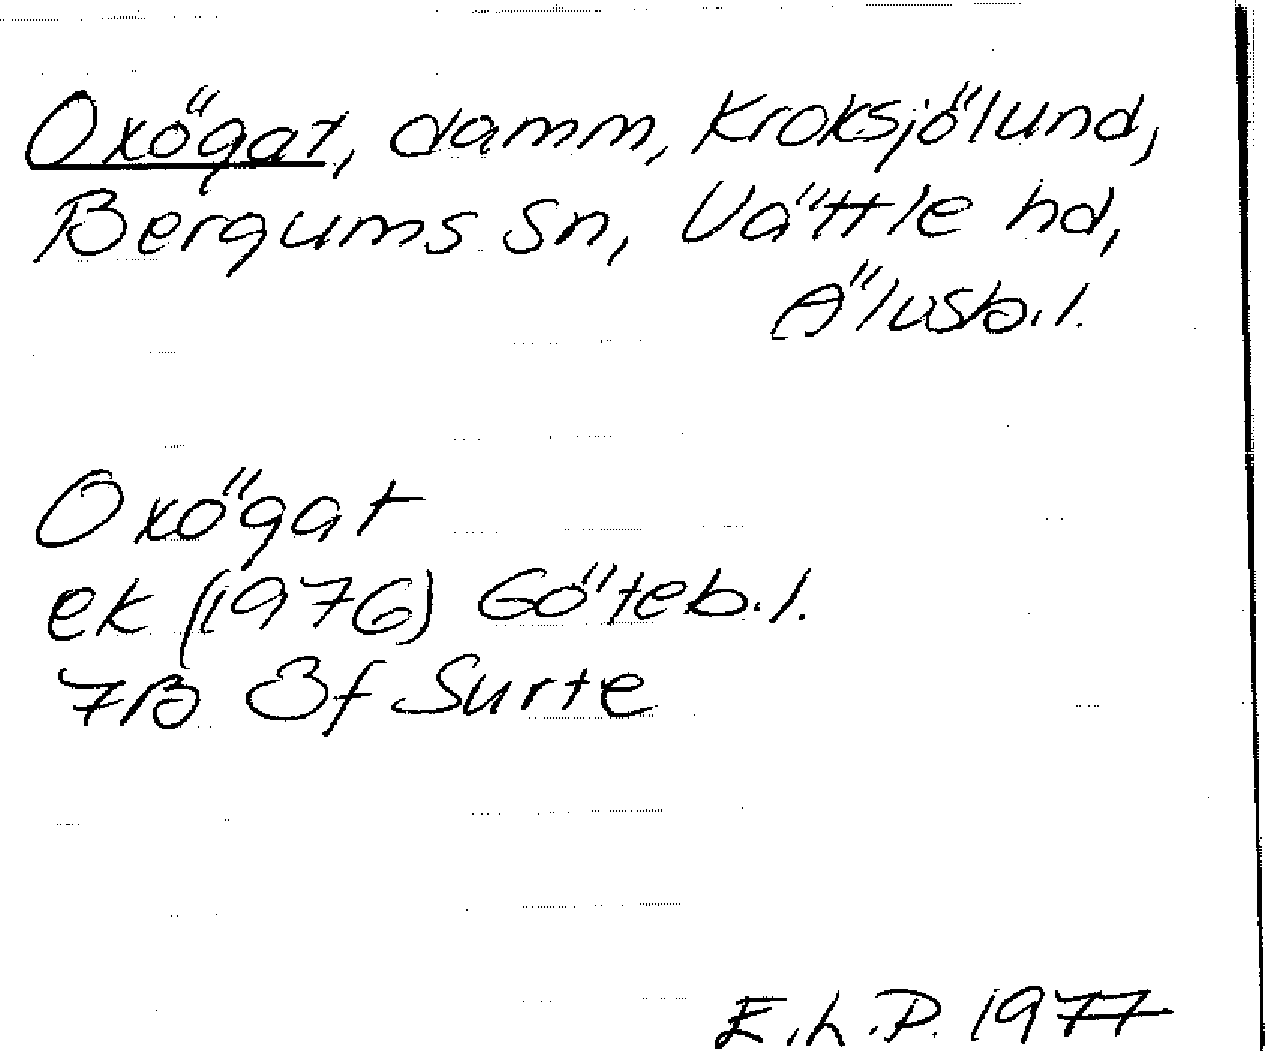 Oxögat, damm, Kroksjölund,
Bergums sn, Vättle hd,
Älvsb.l.
Oxögat
ek (1976) Göteb.l.
7B 3f Surte
E.L.P. 1977